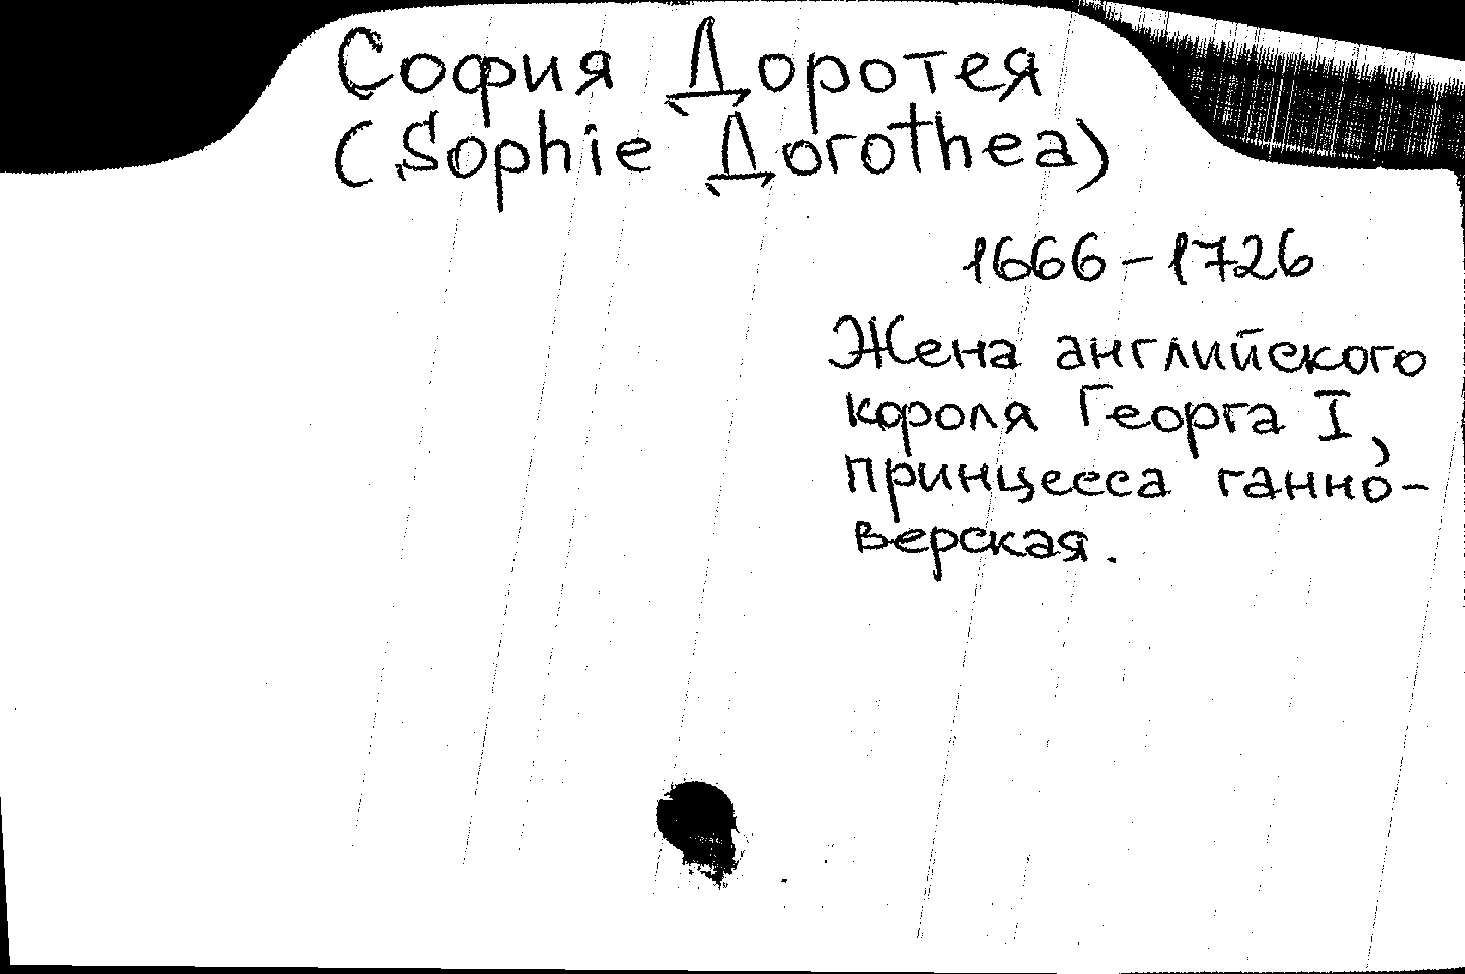 София Доротея
(Sophie Дorothea)
1666-1726
Жена английского
короля Георга I,
принцесса ганно-
верская.